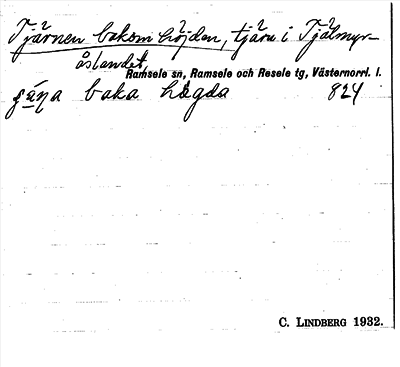 Tjärnen bakom höjden, tjärn i Tjälmyr-
åslandet,
Ramsele sn, Ramsele och Resele tg, Västernorrl. l.
baka 824
C. LINDBERG 1932.